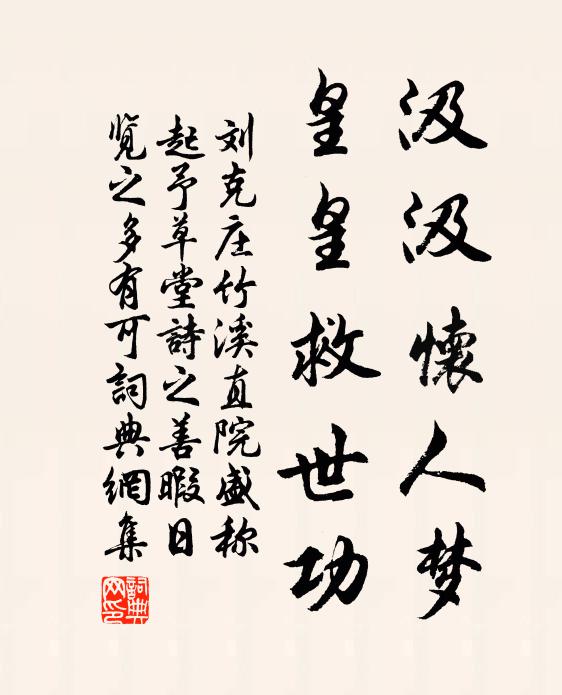 汲汲懷人梦
皇皇救世功
刘克庄竹溪直院盛称
起予草堂詩之善暇日
覽之多有可詞典網集
詞典网印